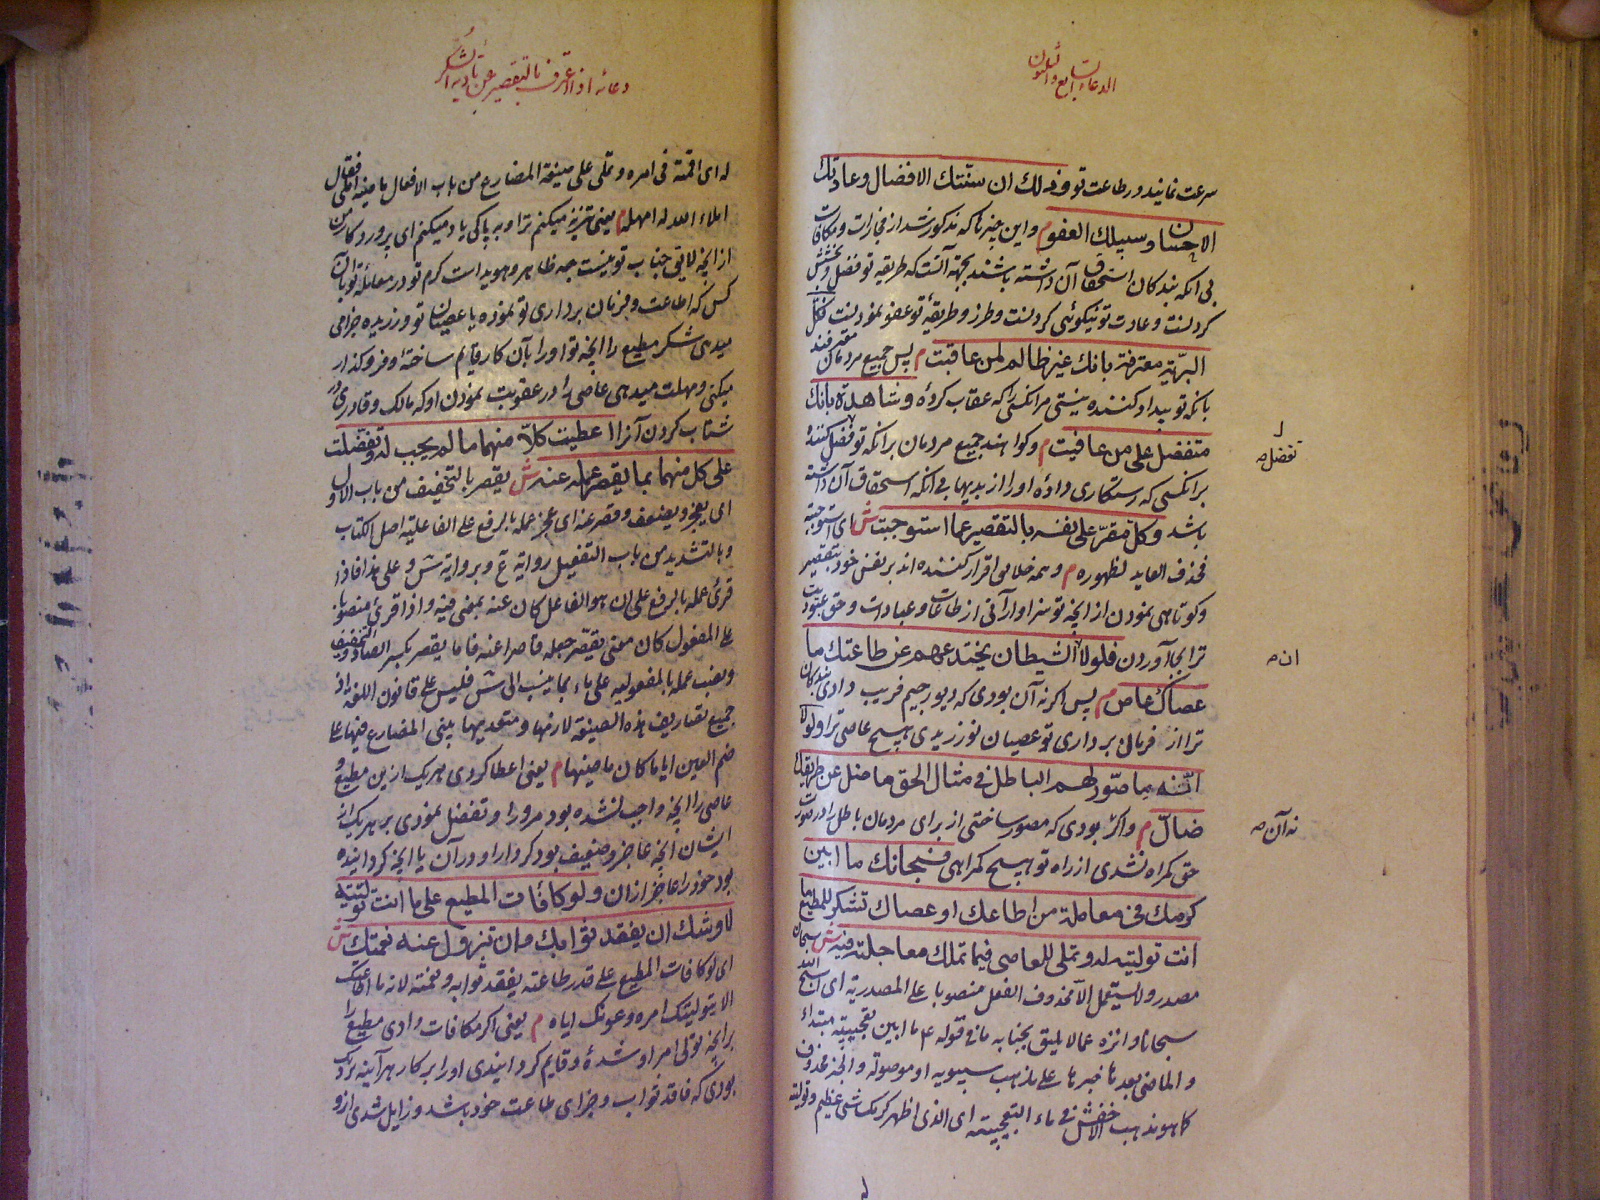 الدعاء السابع والثلثون
سرعت نمایند در طاعت تو وذلك ان سنتك الافضال وعادتك
الاحسان وسبيلك العفو م و این چیزها که مذکور شد از مجازات و مکافات
بی آنکه بندکان استحقاق آن داشته باشند بجهة آنست که طریقه تو فضل و بخشش
کردنست و عادت تو نیکوئی کردنست و طرز و طریقهٔ تو عفو نمودنست فكل
البرية معترفة بانك غير ظالم لمن عاقبت م پس جمیع مردمان معترفند
بانکه تو بیداد کننده نیستی مر آنکسی را که عقاب کردهٔ وشاهدة بانك
متفضل على من عافيت م و کواهند جمیع مردمان بر آنکه تو فضل کنندهٔ
بر آنکسی که رستکاری دادهٔ او را از بدیها بی آنکه استحقاق آن داشته
باشد وكل مقرّ على نفسه بالتقصير عما استوجبت ش ای استوجبته
فحذف العاید لظهوره م و همه خلایق اقرار کننده اند بر نفس خود بتقصیر
و کوتاهی نمودن از آنچه تو سزاوار آنی از طاعات و عبادات و حق عبودیت
ترا بجا آوردن فلولا ان الشيطان يختدعهم عن طاعتك ما
عصاك عاص م پس اکر نه آن بودی که دیو رجیم فریب دادی بندکان
ترا از فرمان برداری تو عصیان نورزیدی هیچ عاصی ترا ولولا
انه ما صوّر لهم الباطل في مثال الحق ما ضل عن طريقك
ضالّ م و اکر نه بودی که مصور ساختی از برای مردمان باطل را در صورت
حق کمراه نشدی از راه تو هیچ کمراهی فسبحانك ما ابين
كرمك في معاملة من اطاعك او عصاك تشكر للمطيع ما
انت توليته له وتملى للعاصى فيما تملك معاجلته فيه ش سبحان
مصدر ولا یستعمل الا محذوف الفعل منصوبا علی المصدریة ای اسبح الله
سبحانا و انزه عما لا یلیق بجنابه ما فی قوله ع ما ابین تعجبیة مبتدأ
و الماضی بعدها خبرها علی مذهب سیبویه او موصولة و الخبر محذوف
کما هو مذهب الاخفش فی ماء التعجبیة ای الذی اظهر کرمک شئ عظیم و تولیته
تفضل ص
ان ص
نه آن ص
دعائه اذا اعترف بالتقصير عن تأدية الشكر
له ای اقمته فی امره و تملی علی صیغة المضارع من باب الافعال ماضیه املی فقال
املاء الله له امهله م یعنی تنزیه میکنم ترا و به پاکی یاد میکنم ای پروردکار من
از آنچه لایق جناب تو نیست چه ظاهر و هویداست کرم تو در معامله تو با آن
کس که اطاعت و فرمان برداری تو نموده یا عصیان تو ورزیده جزا می
میدهی شکر مطیع را آنچه تو او را بآن کار قایم ساختهٔ و فروکذار
میکنی و مهلت میدهی عاصی را در عقوبت نمودن او که مالک و قادری در
شتاب کردن آنرا اعطيت كلاّ منهما ما لم يجب له وتفضلت
على كل منهما بما يقصر عمله عنه ش یقصر بالتخفیف من باب الاول
ای یعجز و یضعف و قصر عنه ای عجز عمله بالرفع علی الفاعلیة اصل الکتاب
و بالتشدید من باب التفعیل روایة ع و بروایة ش و علی هذا فاذا
قرئ عمله بالرفع علی ان هو الفاعل کان عنه بمعنی فیه و اذا قرئ منصوبا
علی المفعول کان معنی یقصر جعله قاصرا عنه فاما یقصر بکسر الصاد و التخفیف
و نصب عمله بالمفعولیه علی ما ینسب الی ش فلیس علی قانون اللغه اذ
جمیع تصاریف هذه الصیغة لازمها و متعدیها یبنی المضارع فیها علی
ضم العین ایا ما کان ماضیها م یعنی اعطا کردی بهر یک ازین مطیع و
عاصی را آنچه واجب نشده بود مر او را و تفضل نمودی بر هر یک از
ایشان آنچه عاجز و ضعیف بود کردار او در آن یا آنچه کردانیده
بود خود را عاجز از آن ولو كافأت المطيع على ما انت توليته
لاوشك ان يفقد ثوابك وان تزول عنه نعمتك ش
ای لو کافات المطیع علی قدر طاعته یفقد ثوابه و نعمته لانه ما اطاعک
الا بتولیتک امره و عونک ایاه م یعنی اکر مکافات دادی مطیع را
بر آنچه تولی امر او شدهٔ و قایم کردانیدی او را بر کار هر آینه نزدیک
بودی که فاقد ثواب و جزای طاعت خود باشد و زایل شدی ازو